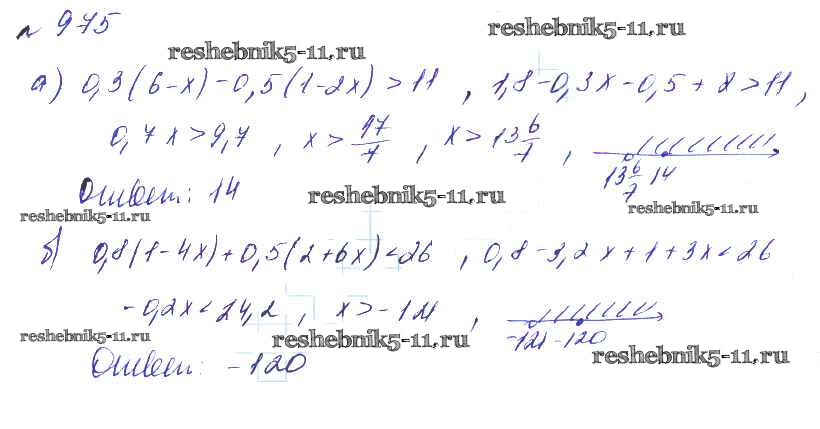 № 975
reshebnik5-11.ru reshebnik5-11.ru
а) 0,3(6-x)-0,5(1-2x)>11, 1,8-0,3x-0,5+x>11,
0,7x>9,7, x>97/7, x>13 6/7, 13 6/7 14
Ответ: 14 reshebnik5-11.ru
reshebnik5-11.ru reshebnik5-11.ru
б) 0,8(1-4x)+0,5(2+6x)<26, 0,8-3,2x+1+3x<26
-0,2x<24,2, x>-121, -121 -120
reshebnik5-11.ru reshebnik5-11.ru reshebnik5-11.ru
Ответ: -120